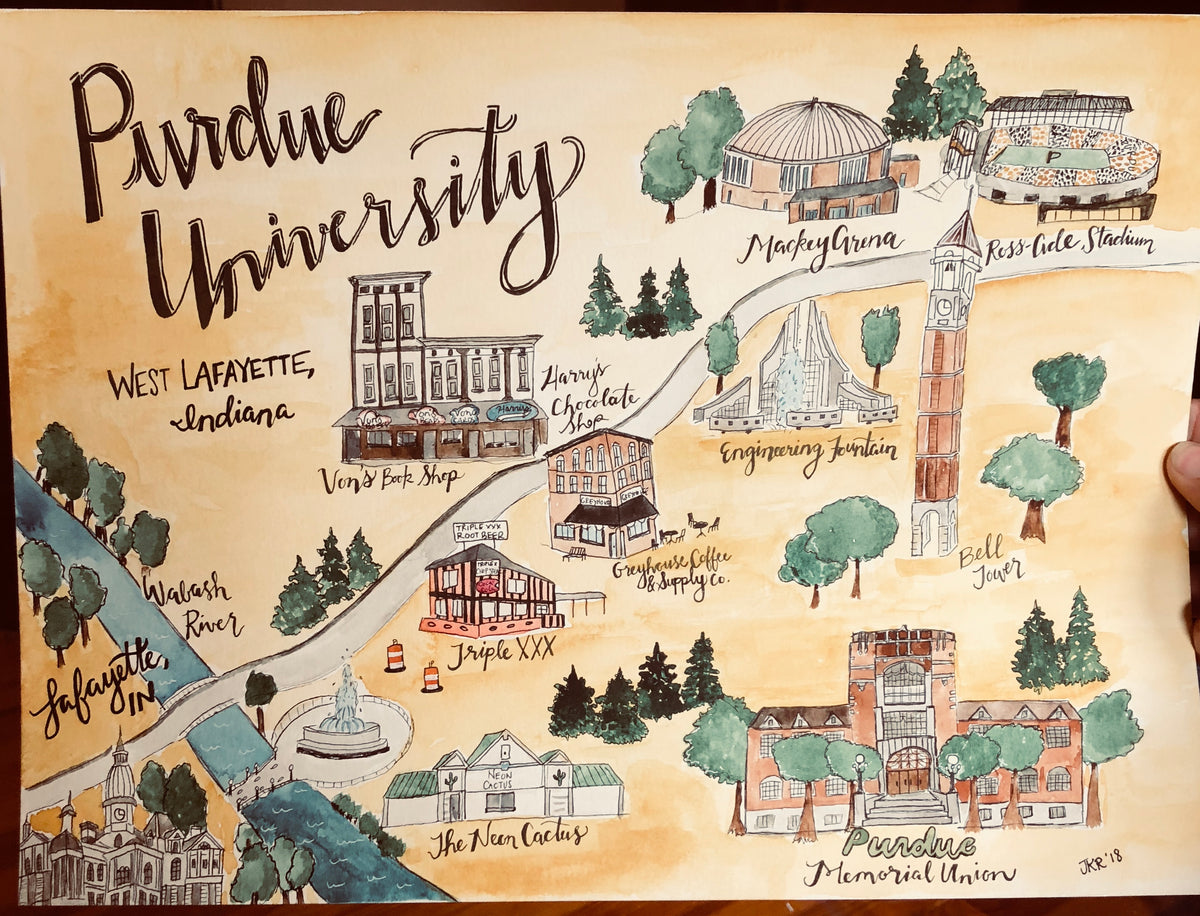 Purdue
University
WEST LAFAYETTE,
Indiana
Mackey Arena
P
Ross-Ade Stadium
Von's
Von's
Von's
Harry's
Von's Book Shop
Harry's
Chocolate
Shop
Engineering Fountain
GREYHOUSE
GREYHOUSE
Greyhouse Coffee
& Supply Co.
Bell
Tower
TRIPLE XXX
ROOT BEER
Triple XXX
Wabash
River
Lafayette,
IN
NEON
CACTUS
The Neon Cactus
Purdue
Memorial Union
JKR '18